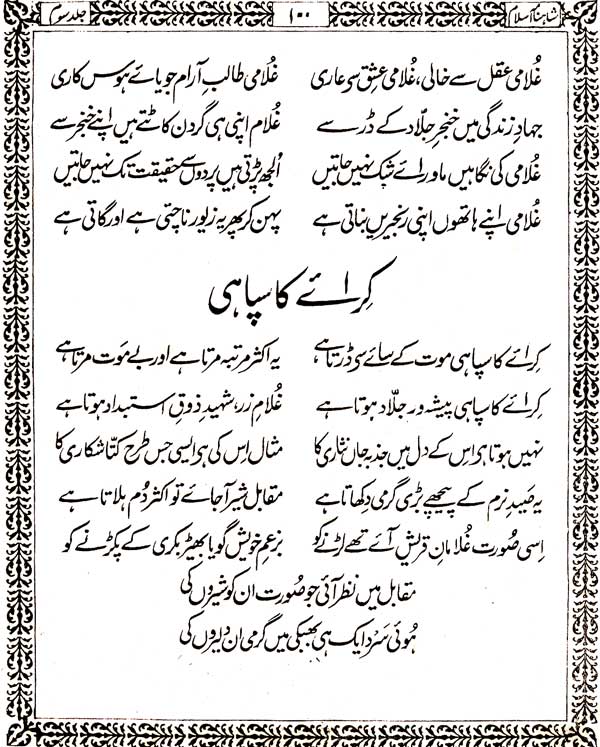 شاہنامہ اسلام ۱۰۰ جلد سوم
غُلامی عقل سے خالی، غُلامی عشق سی عاری غُلامی طالبِ آرام جویائے ہوس کاری
جہادِ زندگی میں خنجرِ جلّاد کے ڈر سے غُلام اپنی ہی گردن کاٹتے ہیں اپنے خنجر سے
غُلامی کی نگاہیں ماورائے شک نہیں جاتیں اُلجھ پڑتی ہیں پردوں سے حقیقت تک نہیں جاتیں
غُلامی اپنے ہاتھوں اپنی زنجیریں بناتی ہے پہن کر پھر یہ زیور ناچتی ہے اور گاتی ہے
کِرائے کا سپاہی
کرائے کا سپاہی موت کے سائے سی ڈرتا ہے یہ اکثر مرتبہ مرتا ہے اور بے موت مرتا ہے
کرائے کا سپاہی پیشہ ور جلّاد ہوتا ہے غُلامِ زر، شہیدِ ذوقِ استبداد ہوتا ہے
نہیں ہوتا ہو اس کے دل میں جذبہ جاں نثاری کا مثال اِس کی ہو ایسی جس طرح کتّا شکاری کا
یہ صَیدِ نرم کے پیچھے بڑی گرمی دکھاتا ہے مقابل شیر آ جائے تو اکثر دُم ہلاتا ہے
اِسی صُورت غُلامانِ قریش آئے تھے لڑنے کو بزعمِ خویش گویا بھیڑ بکری کے پکڑنے کو
مقابل میں نظر آئی جو صُورت ان کو شیروں کی
ہُوئی سَرد ایک ہی بھبکی میں گرمی ان دلیروں کی